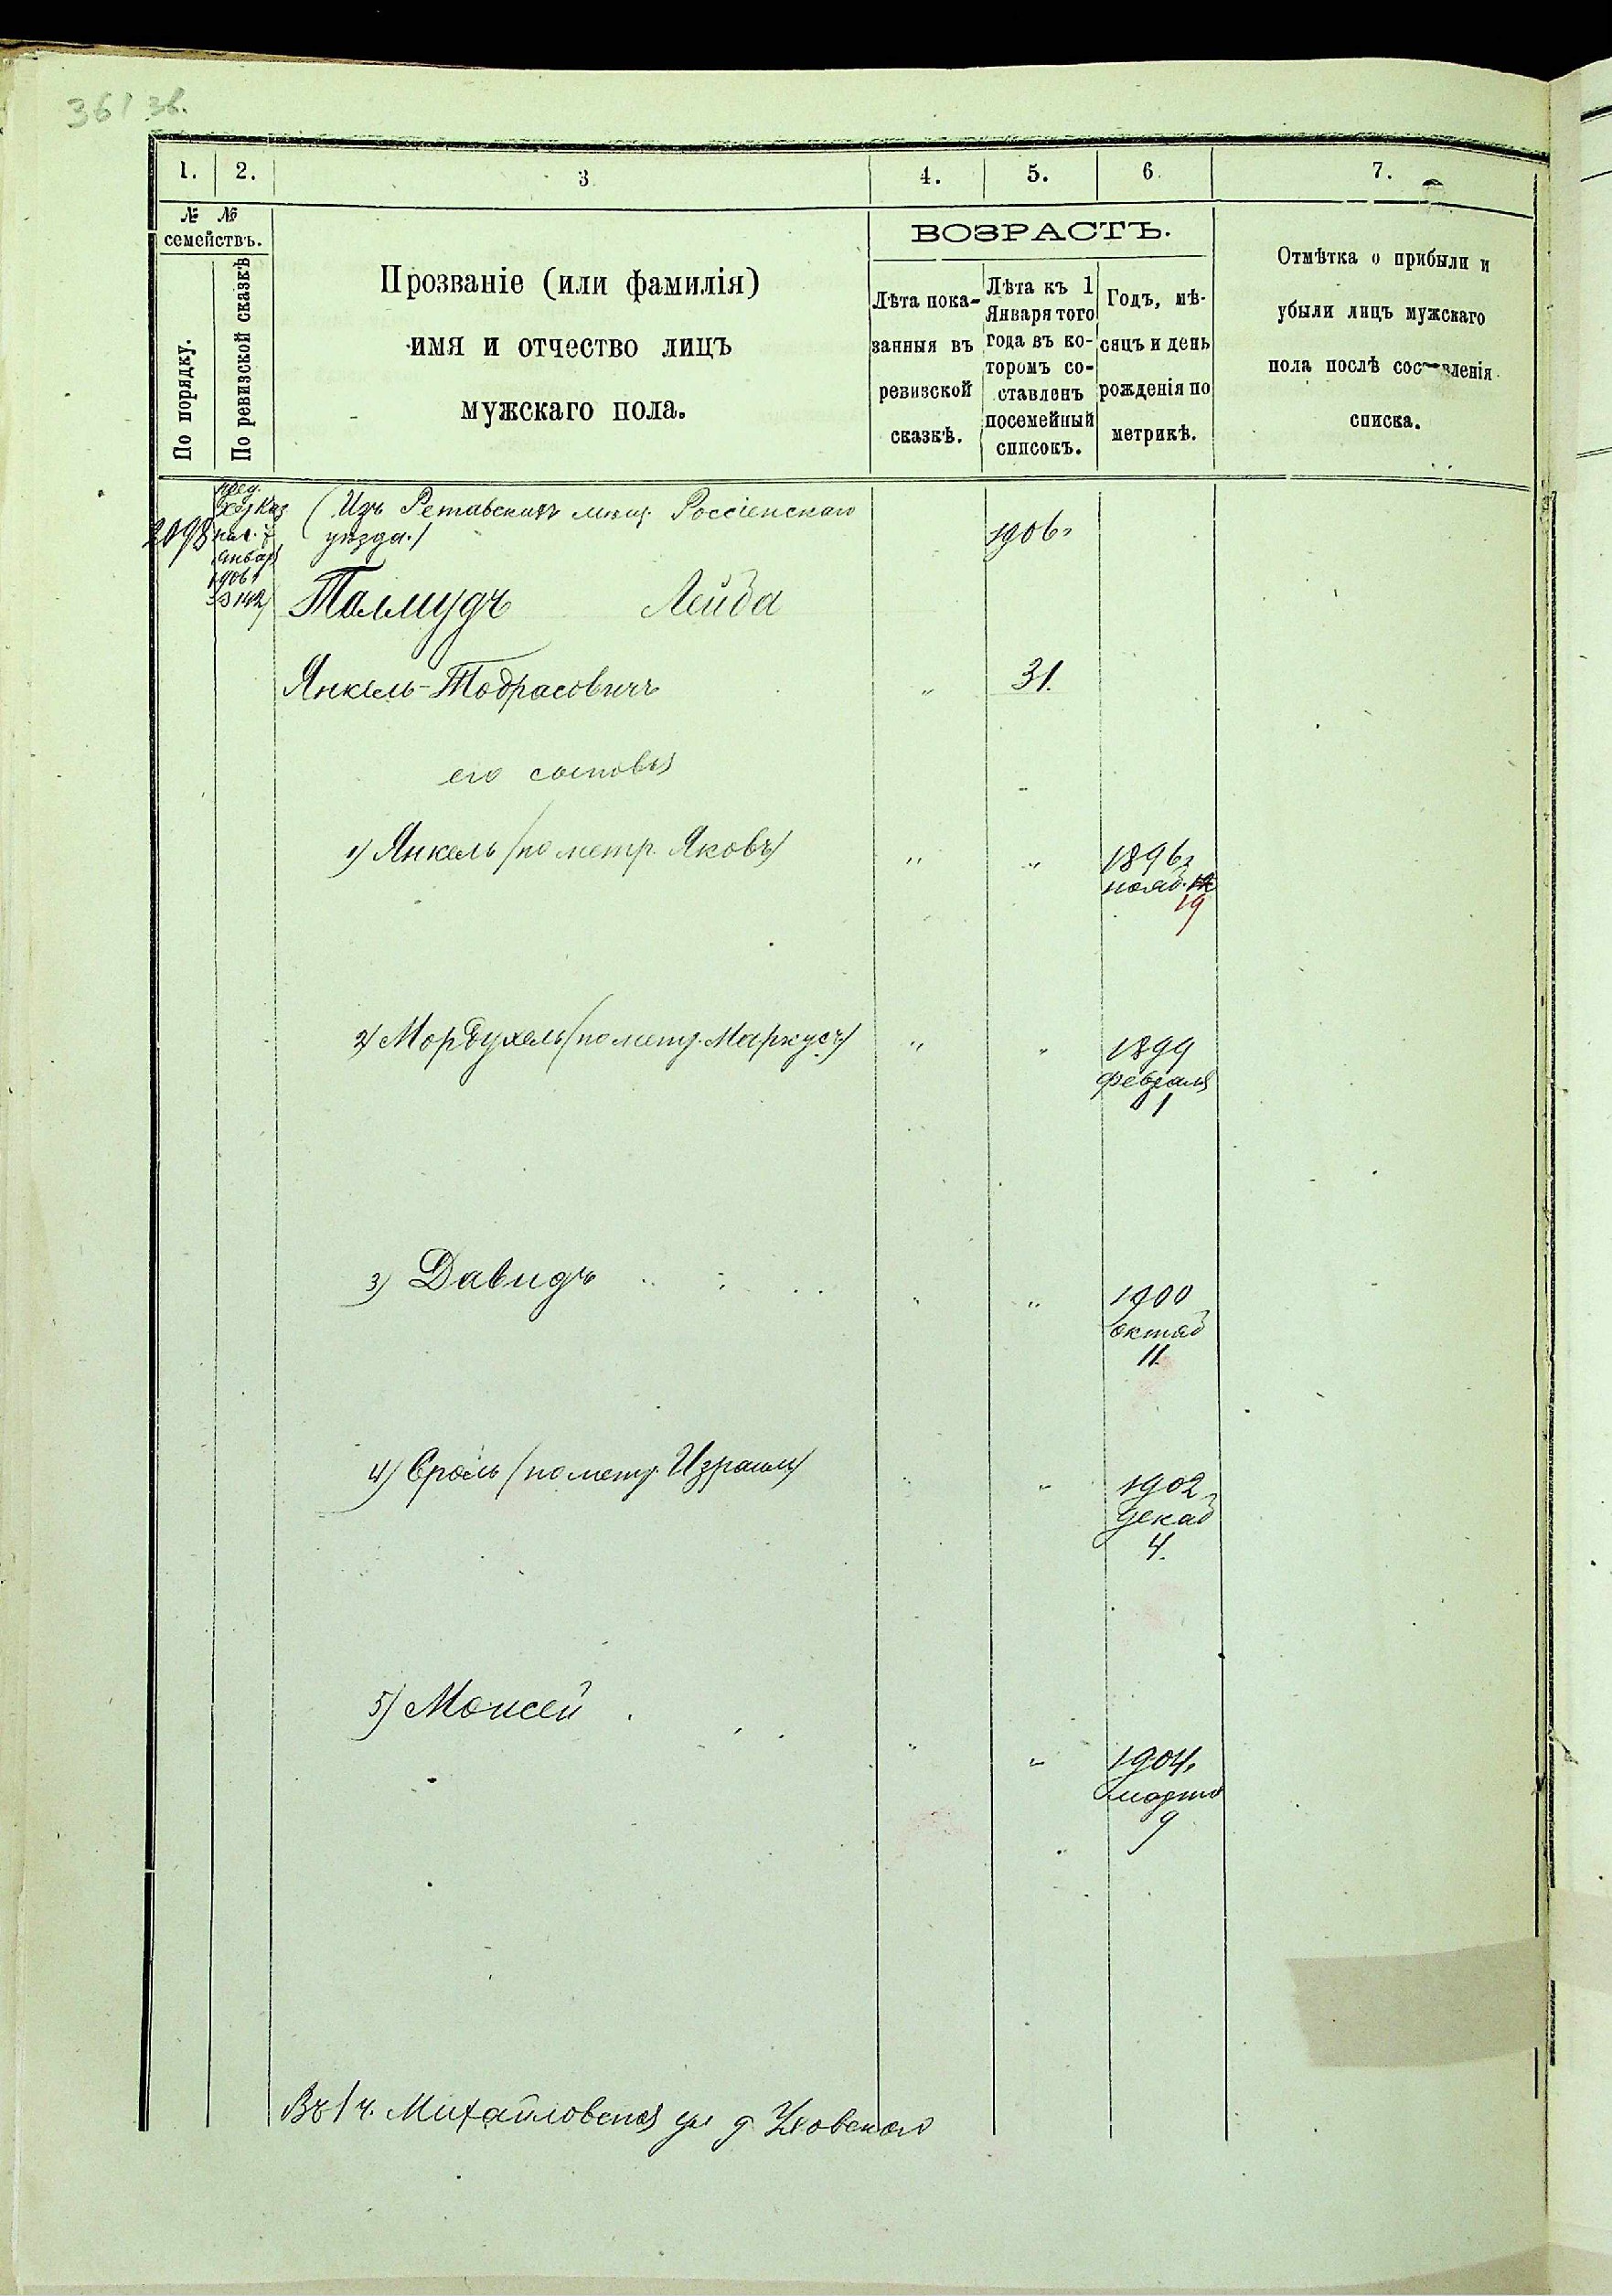 361 зв.
1. 2. 3 4. 5. 6. 7.
№ №
семействъ.
По порядку.
По ревизской сказкѣ
Прозваніе (или фамилія)
имя и отчество лицъ
мужскаго пола.
ВОЗРАСТЪ.
Лѣта пока-
занныя въ
ревизской
сказкѣ.
Лѣта къ 1
Января того
года въ ко-
торомъ со-
ставленъ
посемейный
списокъ.
Годъ, мѣ-
сяцъ и день
рожденія по
метрикѣ.
Отмѣтка о прибыли и
убыли лицъ мужскаго
пола послѣ составленія
списка.
2098
пред.
Каз
пал. 7
январ
1906
№ 142
(Изъ Ретавскихъ мѣщ. Россіенскаго
уѣзда.)
1906г
Талмудъ Лейба
Янкель-Тодрасовичъ " 31.
его сыновья
1) Янкель (по метр. Яковъ) " " 1896г
нояб.
19
2) Мордухель (по метр. Маркусъ) " " 1899
февраля
1
3) Давидъ " " 1900
октяб
11.
4) Сроль (по метр. Израиль) " " 1902
декаб
4.
5) Моисей " " 1904.
марта
9
Въ 1 ч. Михайловская ул д.